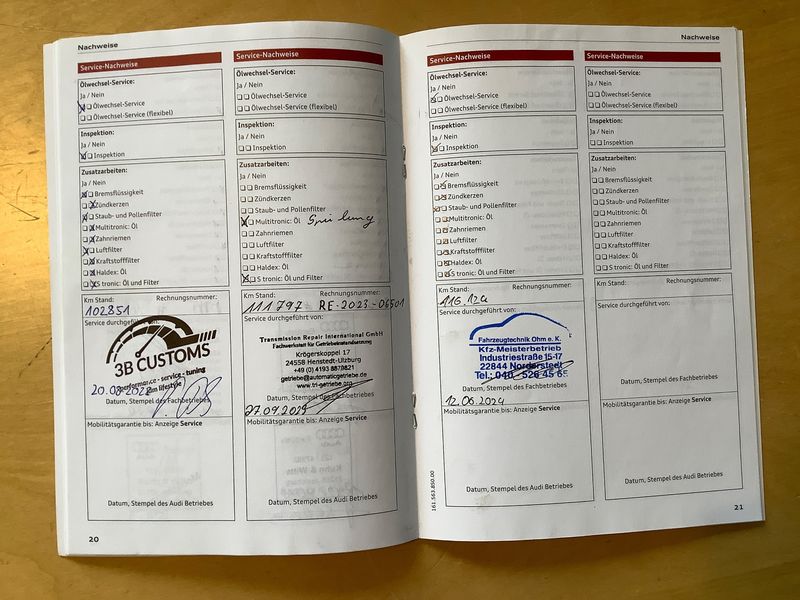 Nachweise
Service-Nachweise
Ölwechsel-Service:
Ja / Nein
Ölwechsel-Service
Ölwechsel-Service (flexibel)
Inspektion:
Ja / Nein
Inspektion
Zusatzarbeiten:
Ja / Nein
Bremsflüssigkeit
Zündkerzen
Staub- und Pollenfilter
Multitronic: Öl
Zahnriemen
Luftfilter
Kraftstofffilter
Haldex: Öl
S tronic: Öl und Filter
Km Stand: Rechnungsnummer:
102851
Service durchgeführt von:
3B CUSTOMS
performance - service - tuning
Datum, Stempel des Fachbetriebes
Mobilitätsgarantie bis: Anzeige Service
Datum, Stempel des Audi Betriebes
20
Service-Nachweise
Ölwechsel-Service:
Ja / Nein
Ölwechsel-Service
Ölwechsel-Service (flexibel)
Inspektion:
Ja / Nein
Inspektion
Zusatzarbeiten:
Ja / Nein
Bremsflüssigkeit
Zündkerzen
Staub- und Pollenfilter
Multitronic: Öl Spülung
Zahnriemen
Luftfilter
Kraftstofffilter
Haldex: Öl
S tronic: Öl und Filter
Km Stand: Rechnungsnummer:
111797 RE-2023-06501
Service durchgeführt von:
Transmission Repair International GmbH
Fachwerkstatt für Getriebeinstandsetzung
Krögerskoppel 17
24558 Henstedt-Ulzburg
+49 (0) 4193 8879821
getriebe@automaticgetriebe.de
www.tri-getriebe.org
Datum, Stempel des Fachbetriebes
Mobilitätsgarantie bis: Anzeige Service
Datum, Stempel des Audi Betriebes
Nachweise
Service-Nachweise
Ölwechsel-Service:
Ja / Nein
Ölwechsel-Service
Ölwechsel-Service (flexibel)
Inspektion:
Ja / Nein
Inspektion
Zusatzarbeiten:
Ja / Nein
Bremsflüssigkeit
Zündkerzen
Staub- und Pollenfilter
Multitronic: Öl
Zahnriemen
Luftfilter
Kraftstofffilter
Haldex: Öl
S tronic: Öl und Filter
Km Stand: Rechnungsnummer:
116.124
Service durchgeführt von:
Fahrzeugtechnik Ohm e. K.
Kfz-Meisterbetrieb
Industriestraße 15-17
22844 Norderstedt
Tel.: 040
Datum, Stempel des Fachbetriebes
12.06.2024
Mobilitätsgarantie bis: Anzeige Service
Datum, Stempel des Audi Betriebes
161.563.850.00
Service-Nachweise
Ölwechsel-Service:
Ja / Nein
Ölwechsel-Service
Ölwechsel-Service (flexibel)
Inspektion:
Ja / Nein
Inspektion
Zusatzarbeiten:
Ja / Nein
Bremsflüssigkeit
Zündkerzen
Staub- und Pollenfilter
Multitronic: Öl
Zahnriemen
Luftfilter
Kraftstofffilter
Haldex: Öl
S tronic: Öl und Filter
Km Stand: Rechnungsnummer:
Service durchgeführt von:
Datum, Stempel des Fachbetriebes
Mobilitätsgarantie bis: Anzeige Service
Datum, Stempel des Audi Betriebes
21